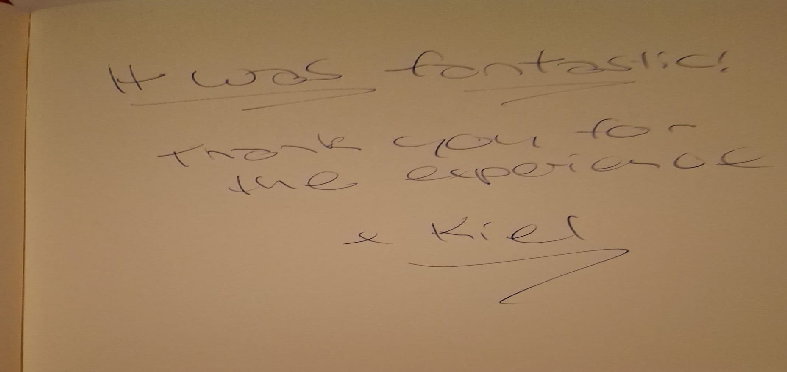 It was fantastic!
Thank you for
the experience
x Kiel